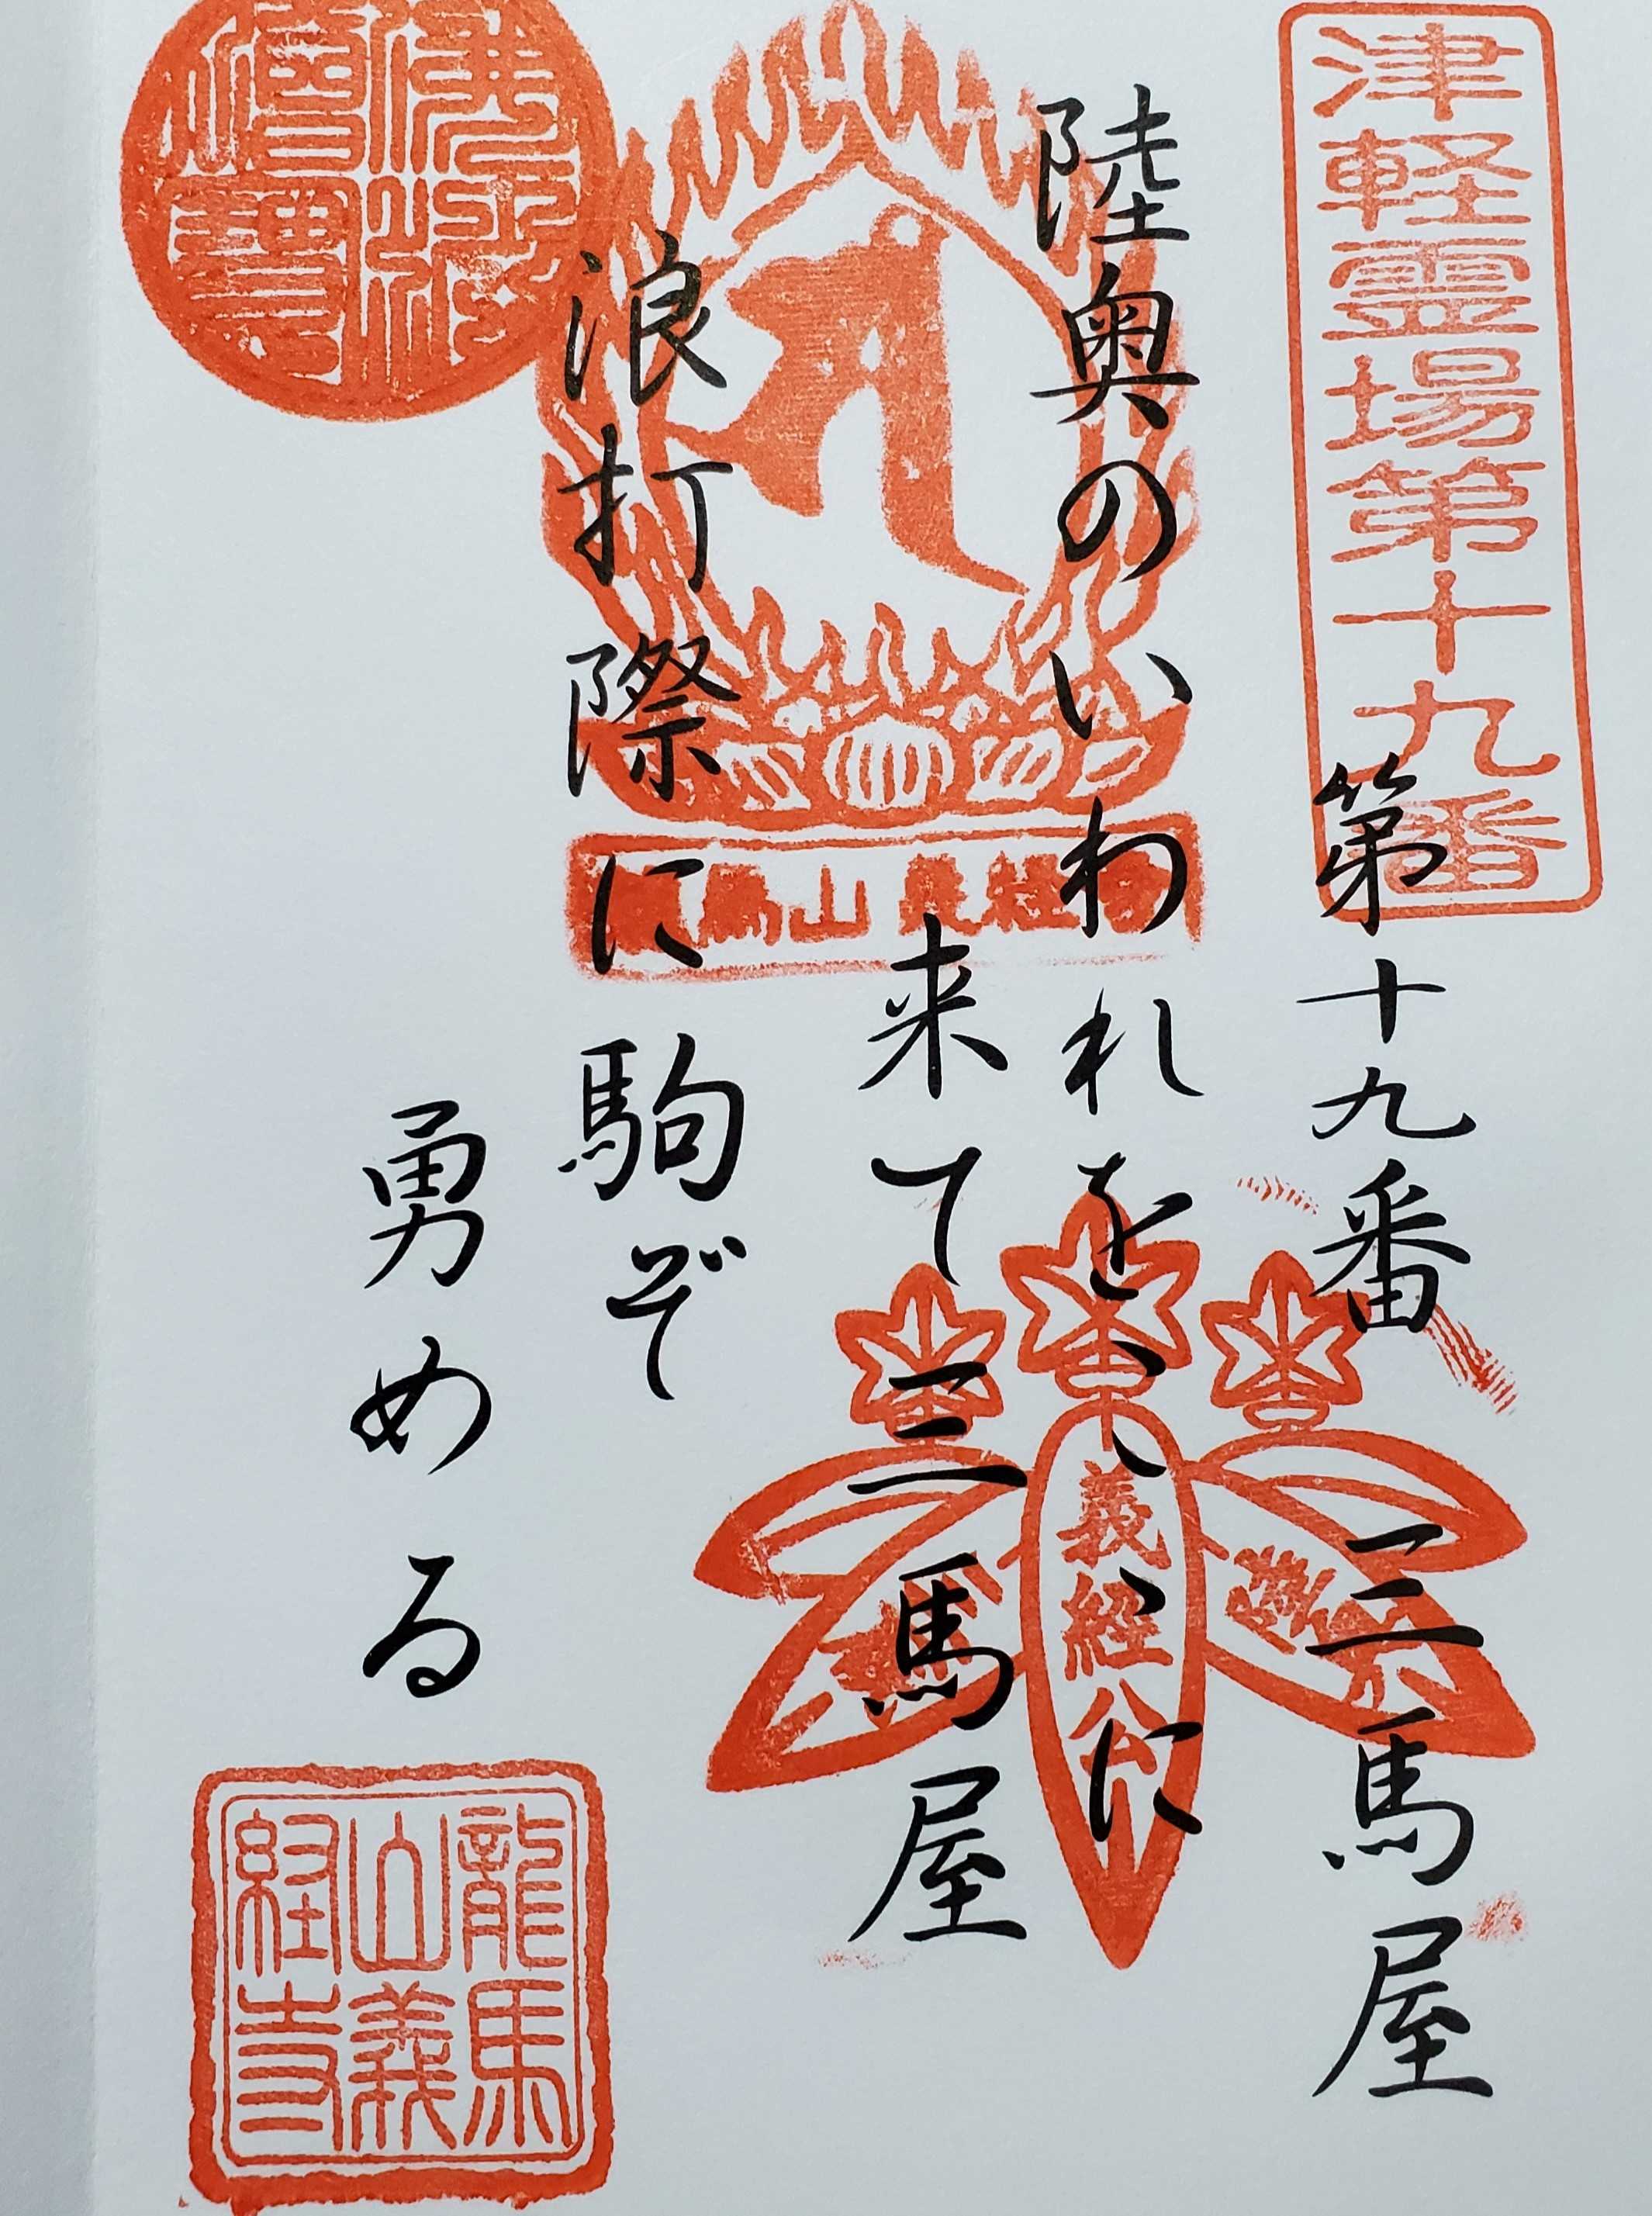 津軽霊場第十九番
第十九番 三馬屋
陸奥のいわれをこゝに
来て三馬屋
浪打際に駒ぞ
勇める
佛法僧寶
龍馬山義経寺
義経公
龍馬
山義
経寺